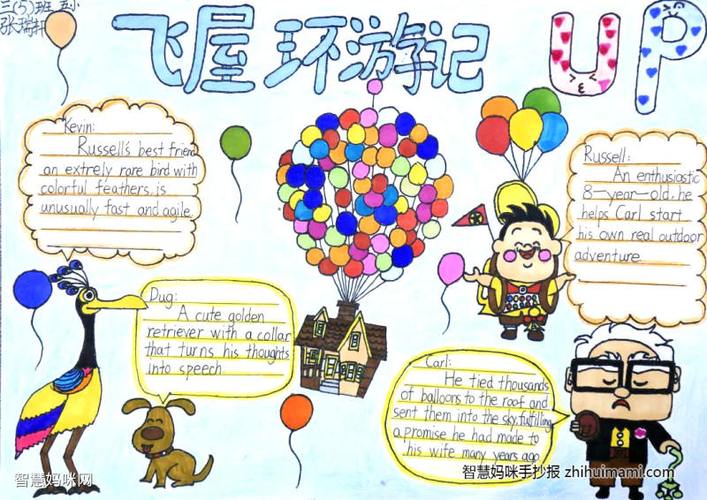 三(5)班
张瑞轩
飞屋环游记
UP
Kevin:
Russell's best friend
an extrely rare bird with
colorful feathers, is
unusually fast and agile.
Russell:
An enthusiastic
8-year-old, he
helps Carl start
his own real outdoor
adventure
Dug:
A cute golden
retriever with a collar
that turns his thoughts
into speech
Carl:
He tied thousands
of balloons to the roof and
sent them into the sky, fulfilling
a promise he had made to
his wife many years ago
智慧妈咪网
智慧妈咪手抄报 zhihuimami.com